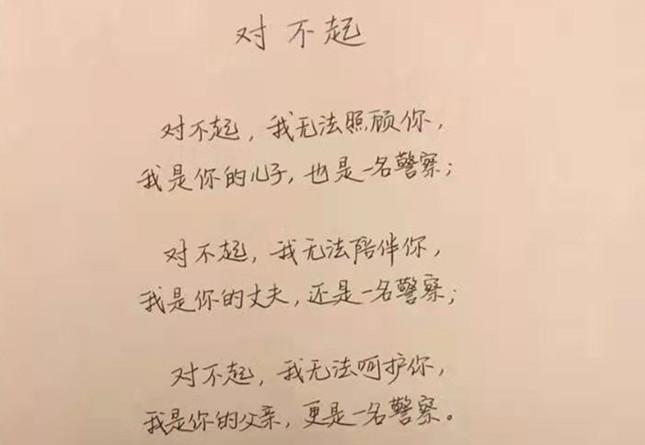 对不起
对不起，我无法照顾你，
我是你的儿子，也是一名警察；
对不起，我无法陪伴你，
我是你的丈夫，还是一名警察；
对不起，我无法呵护你，
我是你的父亲，更是一名警察。